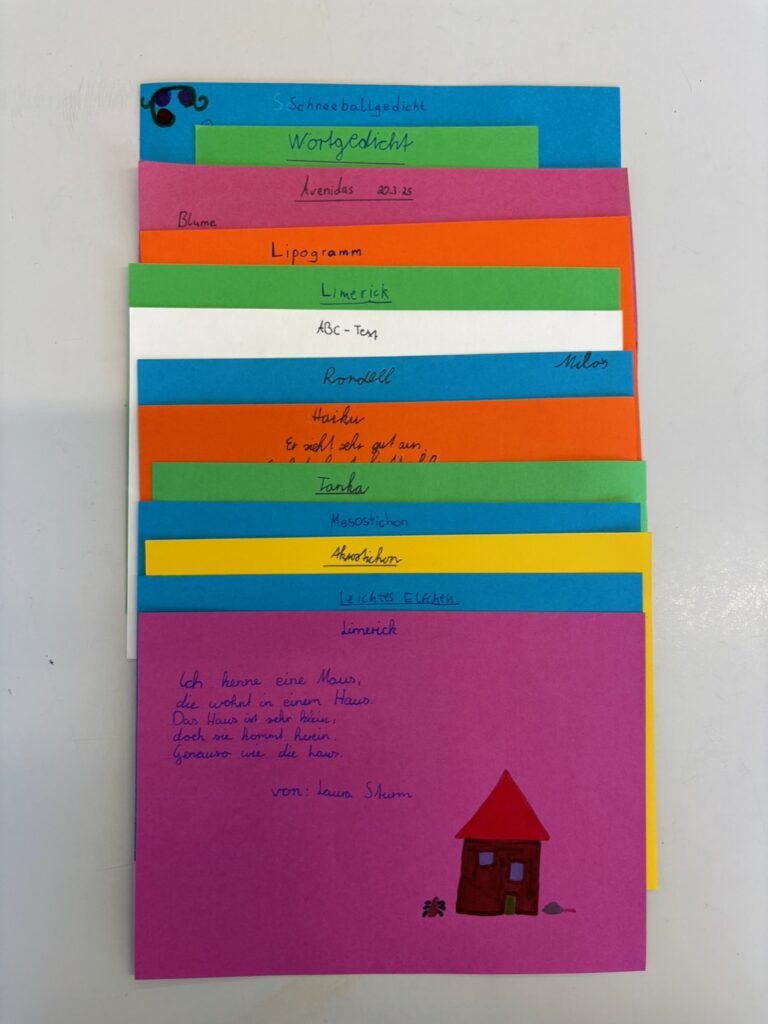 Schneeballgedicht
Wortgedicht
Avenidas 20.3.25
Blume
Lipogramm
Limerick
ABC - Text
Milos
Rondell
Haiku
Er sieht sehr gut aus,
Tanka
Mesostichon
Akrostichon
Leichtes Elfchen
Limerick
Ich kenne eine Maus,
die wohnt in einem Haus.
Das Haus ist sehr klein,
doch sie kommt herein.
Genauso wie die Laus.
von: Laura Sturm